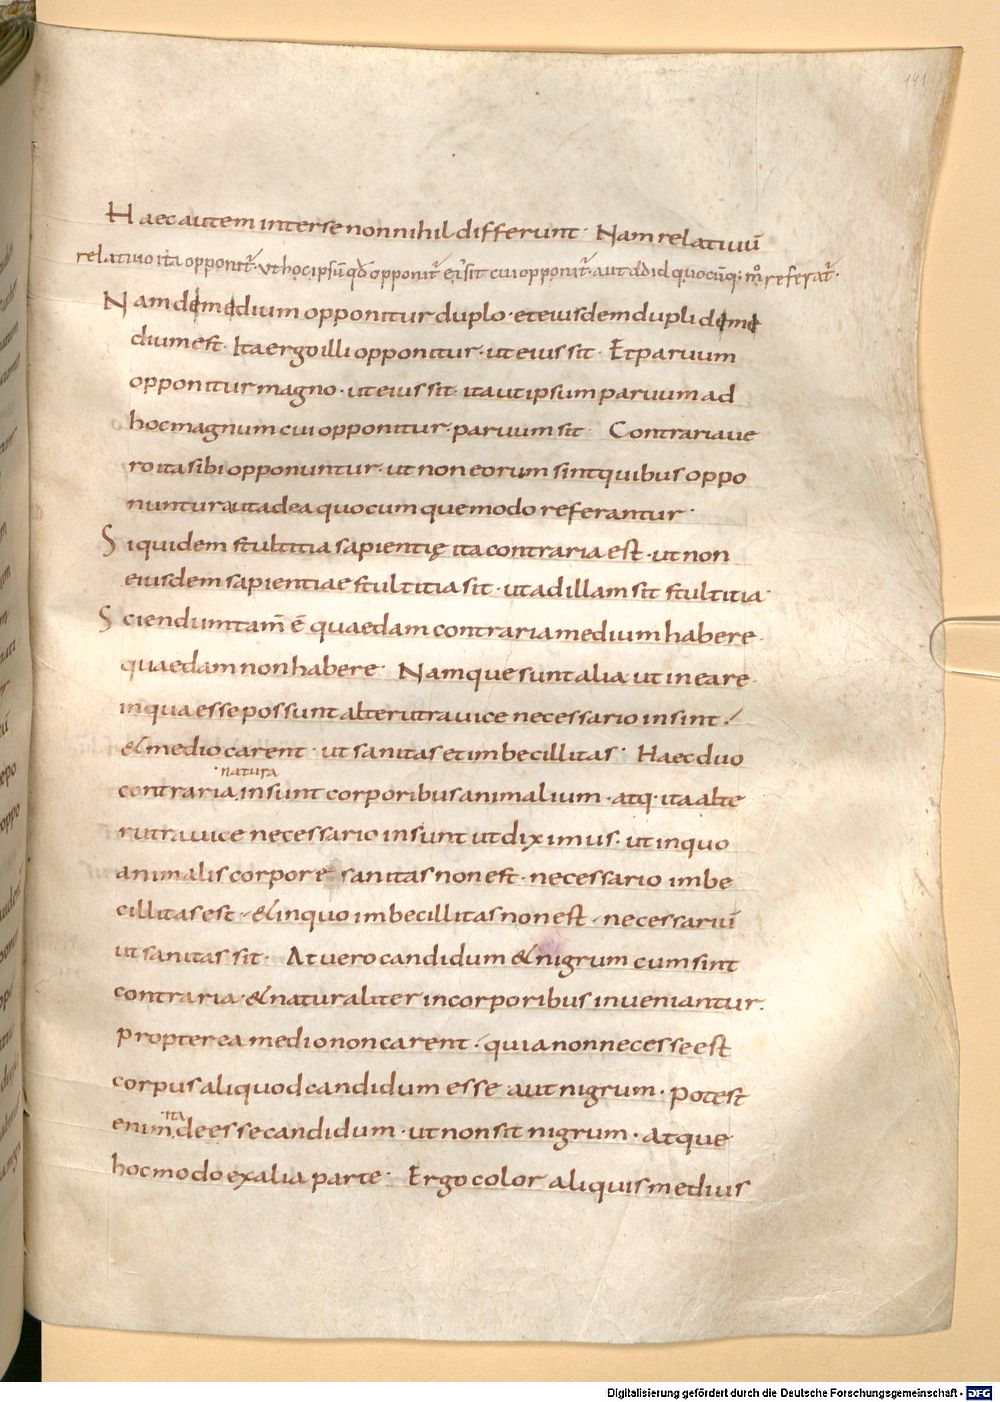 141
Haec autem inter se non nihil differunt· Nam relatiuū
relatiuo ita opponit᷑· ut hoc ipsū qd̄ opponit᷑ ei᷑ sit cui opponit᷑· aut ad id quocūq; m̊ referat᷑·
Nam demedium opponitur duplo· et eiusdem dupli deme
dium est· Ita ergo illi opponitur· ut eius sit· Et paruum
opponitur magno· ut eius sit· ita ut ipsum paruum ad
hoc magnum cui opponitur· paruum sit Contraria ue
ro ita sibi opponuntur· ut non eorum sint quibus oppo
nuntur aut ad ea quocumque modo referantur·
Siquidem stultitia sapientię ita contraria est· ut non
eiusdem sapientiae stultitia sit· ut ad illam sit stultitia·
Sciendum tam̄ ē quaedam contraria medium habere·
quaedam non habere· Namque sunt alia ut in ea re·
in qua esse possunt alterutra uice necessario insint·/
& medio carent· ut sanitas et imbecillitas· Haec duo
natura
contraria, insunt corporibus animalium· atq· ita alte
rutra uice necessario insunt ut diximus· ut in quo
animalis corpore sanitas non est· necessario imbe
cillitas est· & in quo imbecillitas non est· necessariū
ut sanitas sit· At uero candidum & nigrum cum sint
contraria· & naturaliter in corporibus inueniantur·
Propterea medio non carent·/ quia non necesse est
corpus aliquod candidum esse aut nigrum· Potest
ita
enim, deesse candidum· ut non sit nigrum· Atque
hoc modo ex alia parte· Ergo color aliquis medius
Digitalisierung gefördert durch die Deutsche Forschungsgemeinschaft - DFG